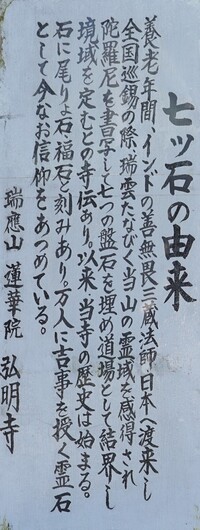 七ツ石の由来
養老年間、インドの善無畏三蔵法師日本へ渡来し
全国巡錫の際、瑞雲たなびく当山の霊域を感得され
陀羅尼を書写し七つの盤石を埋め道場として結界し
境域を定むとの寺伝あり。以来、当寺の歴史は始まる。
石に尾りよ石福石と刻みあり。万人に吉事を授く霊石
として今なお信仰をあつめている。
瑞應山 蓮華院 弘明寺